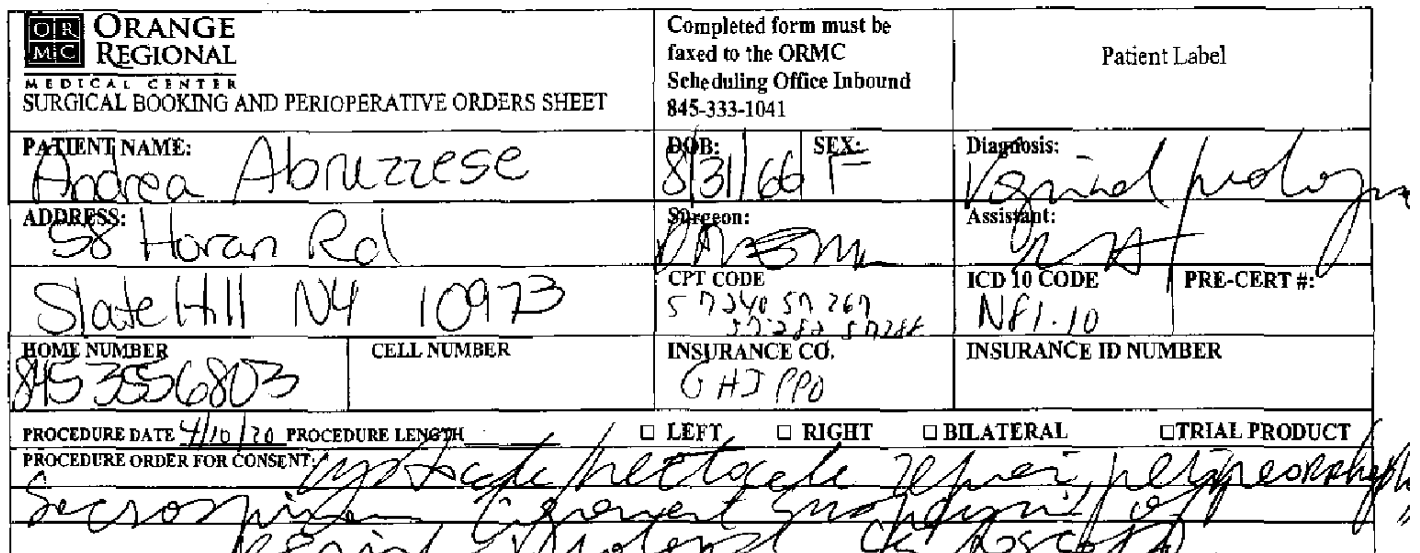 ORMC ORANGE REGIONAL
MEDICAL CENTER
SURGICAL BOOKING AND PERIOPERATIVE ORDERS SHEET
Completed form must be
faxed to the ORMC
Scheduling Office Inbound
845-333-1041
Patient Label
PATIENT NAME: Andrea Abruzzese
DOB: 8/31/66
SEX: F
Diagnosis: Vaginal
ADDRESS: 58 Horan Rd
Surgeon:
Assistant:
Slate Hill NY 10973
CPT CODE
57240 57267
57282 57288
ICD 10 CODE
N81.10
PRE-CERT #:
HOME NUMBER
8453556803
CELL NUMBER
INSURANCE CO.
GHI PPO
INSURANCE ID NUMBER
PROCEDURE DATE 4/10/20 PROCEDURE LENGTH
□ LEFT □ RIGHT □ BILATERAL □ TRIAL PRODUCT
PROCEDURE ORDER FOR CONSENT: cystocele/rectocele repair,